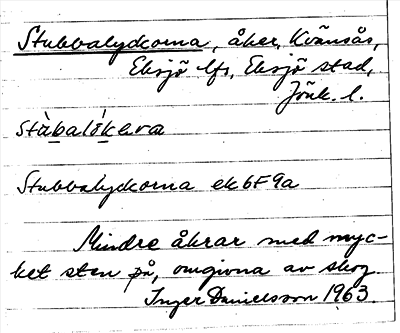 Stubbalyckorna, åker, Kvänsås,
Eksjö lfs, Eksjö stad,
Jönk. l.
stàbalókɐra
Stubbalyckorna ek 6F 9a
Mindre åkrar med myc-
ket sten på, omgivna av skog.
Inger Danielsson 1963.